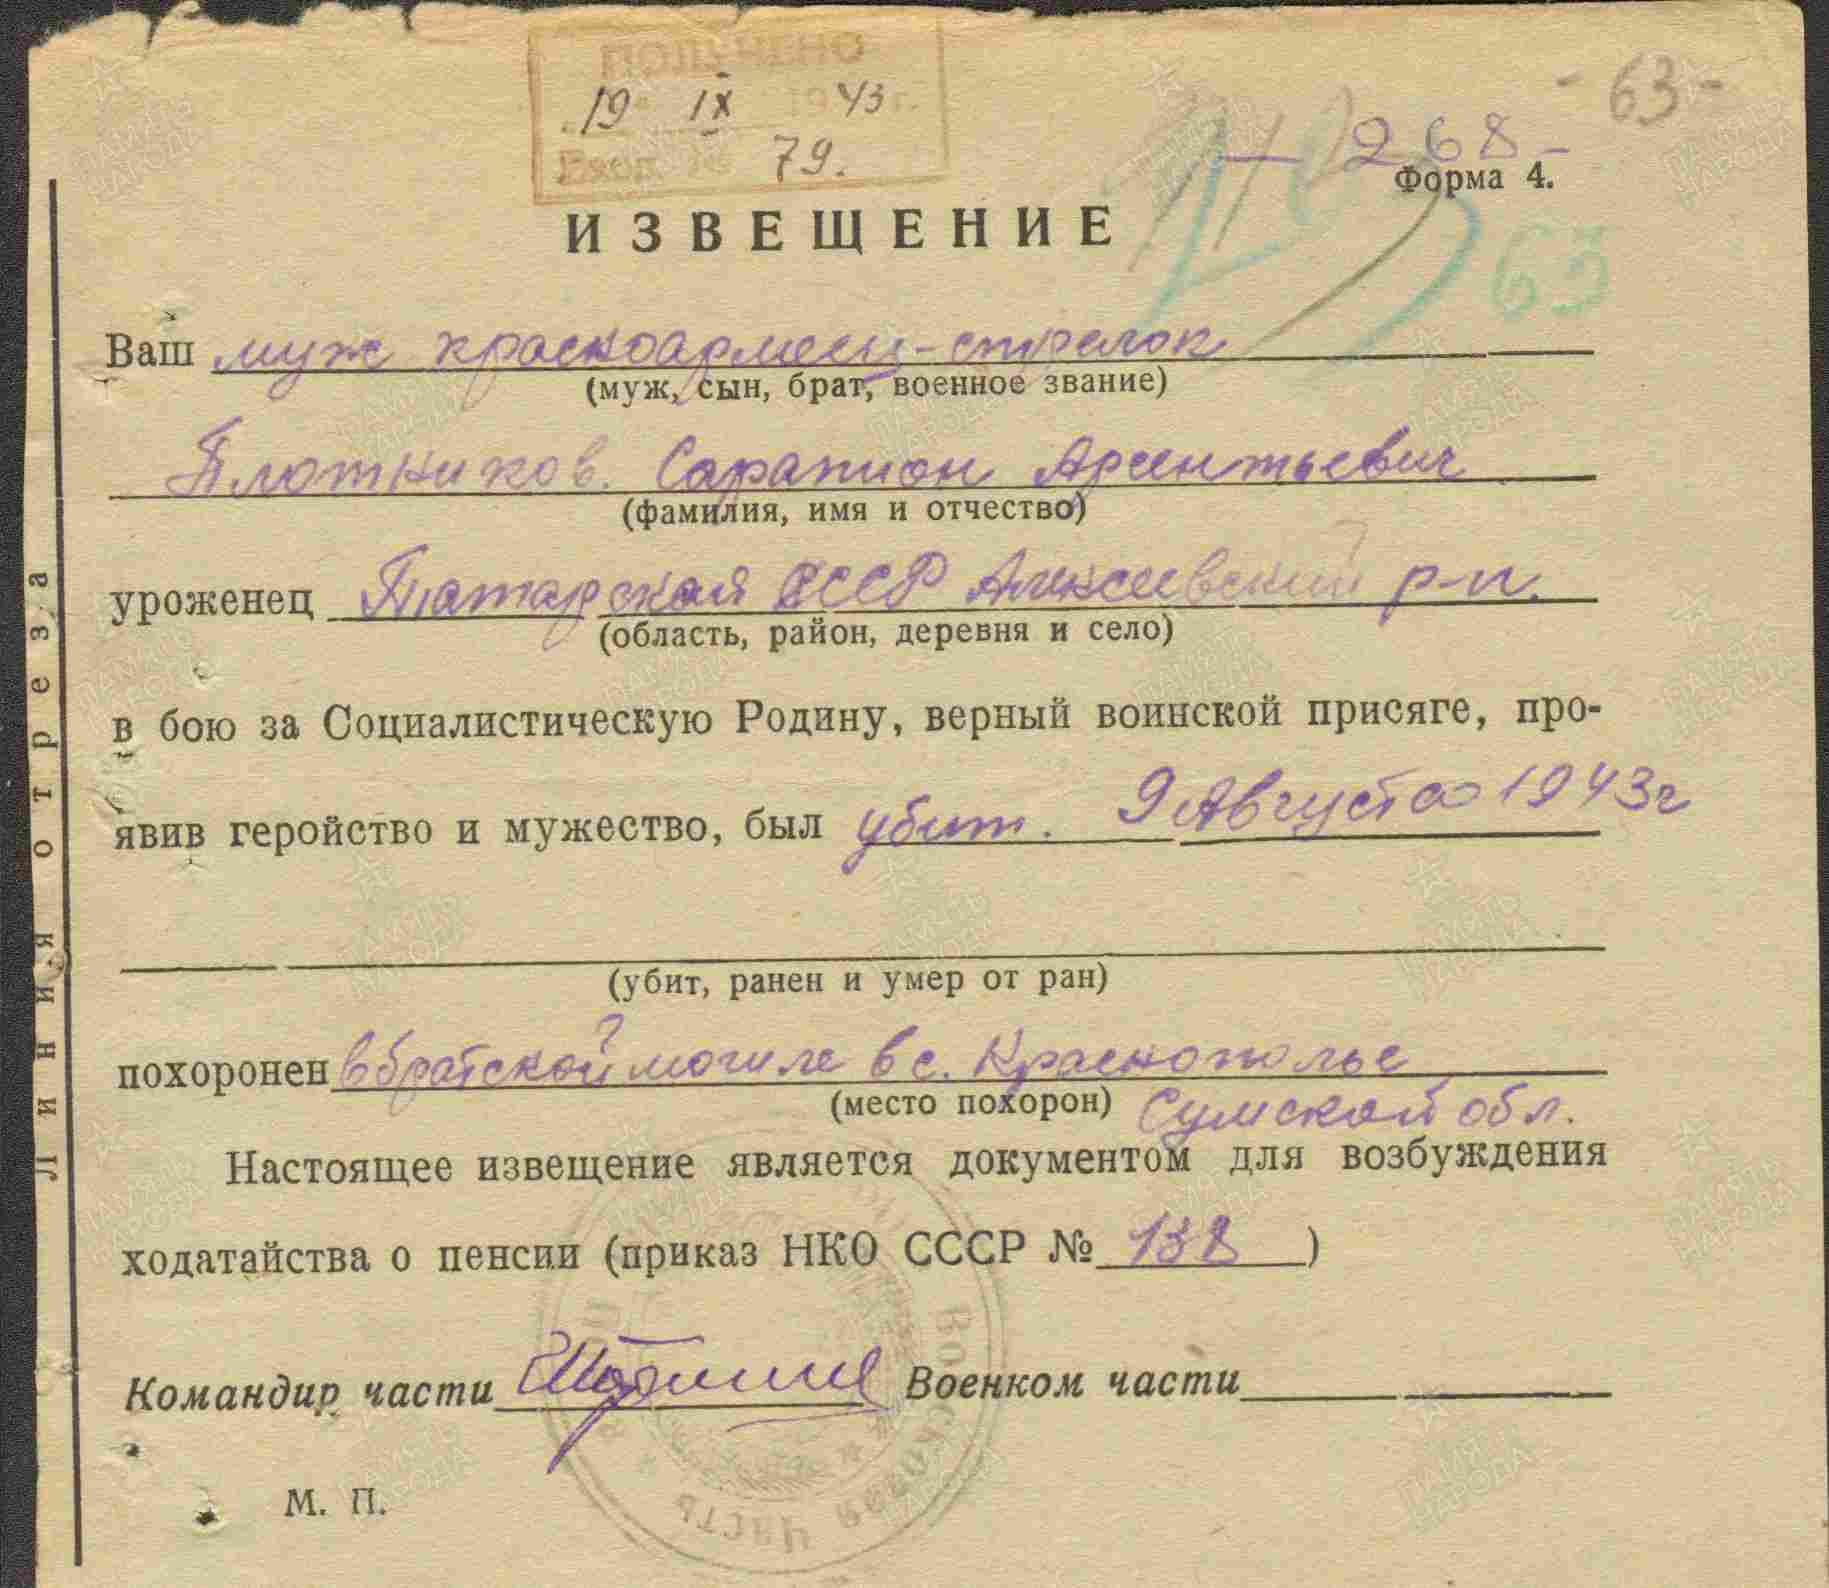 ПОЛУЧЕНО
19 IX 1943 г.
Вход. № 79.
- 63 -
- 268 -
Форма 4.
ИЗВЕЩЕНИЕ
63
Ваш муж красноармеец-стрелок
(муж, сын, брат, военное звание)
Плотников. Сарапион Арсентьевич
(фамилия, имя и отчество)
уроженец Татарской АССР Алексеевский р-н.
(область, район, деревня и село)
в бою за Социалистическую Родину, верный воинской присяге, про-
явив геройство и мужество, был убит. 9 Августа 1943г
(убит, ранен и умер от ран)
похоронен в братской могиле в с. Краснополье
(место похорон) Сумской обл.
Настоящее извещение является документом для возбуждения
ходатайства о пенсии (приказ НКО СССР № 138 )
Командир части Военком части
М. П.
Войсковая часть
Линия отреза
ПАМЯТЬ НАРОДА